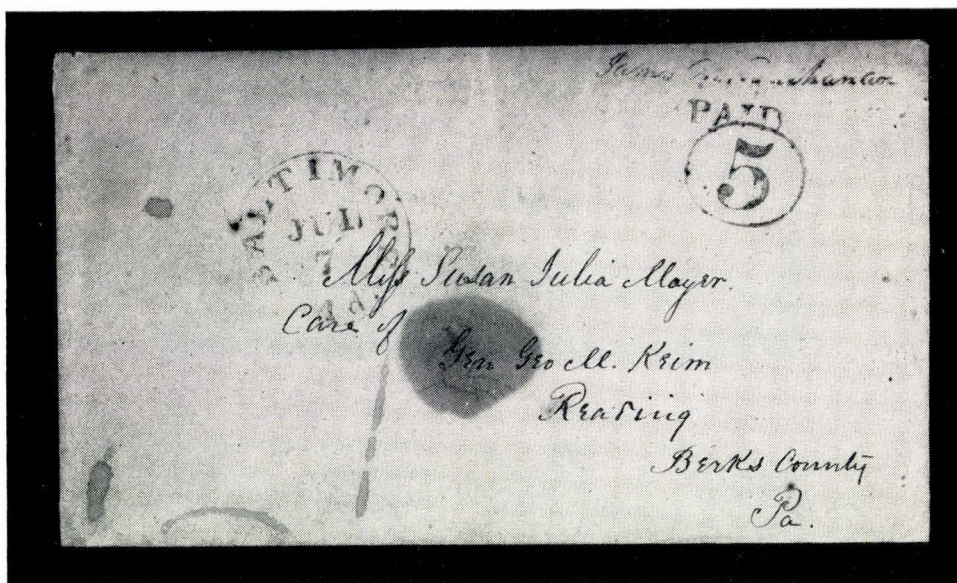 James Buchanan
PAID
5
BALTIMORE
JUL
7
Miss Susan Julia Mayer.
Care of
Gen Geo M. Keim
Reading
Berks County
Pa.